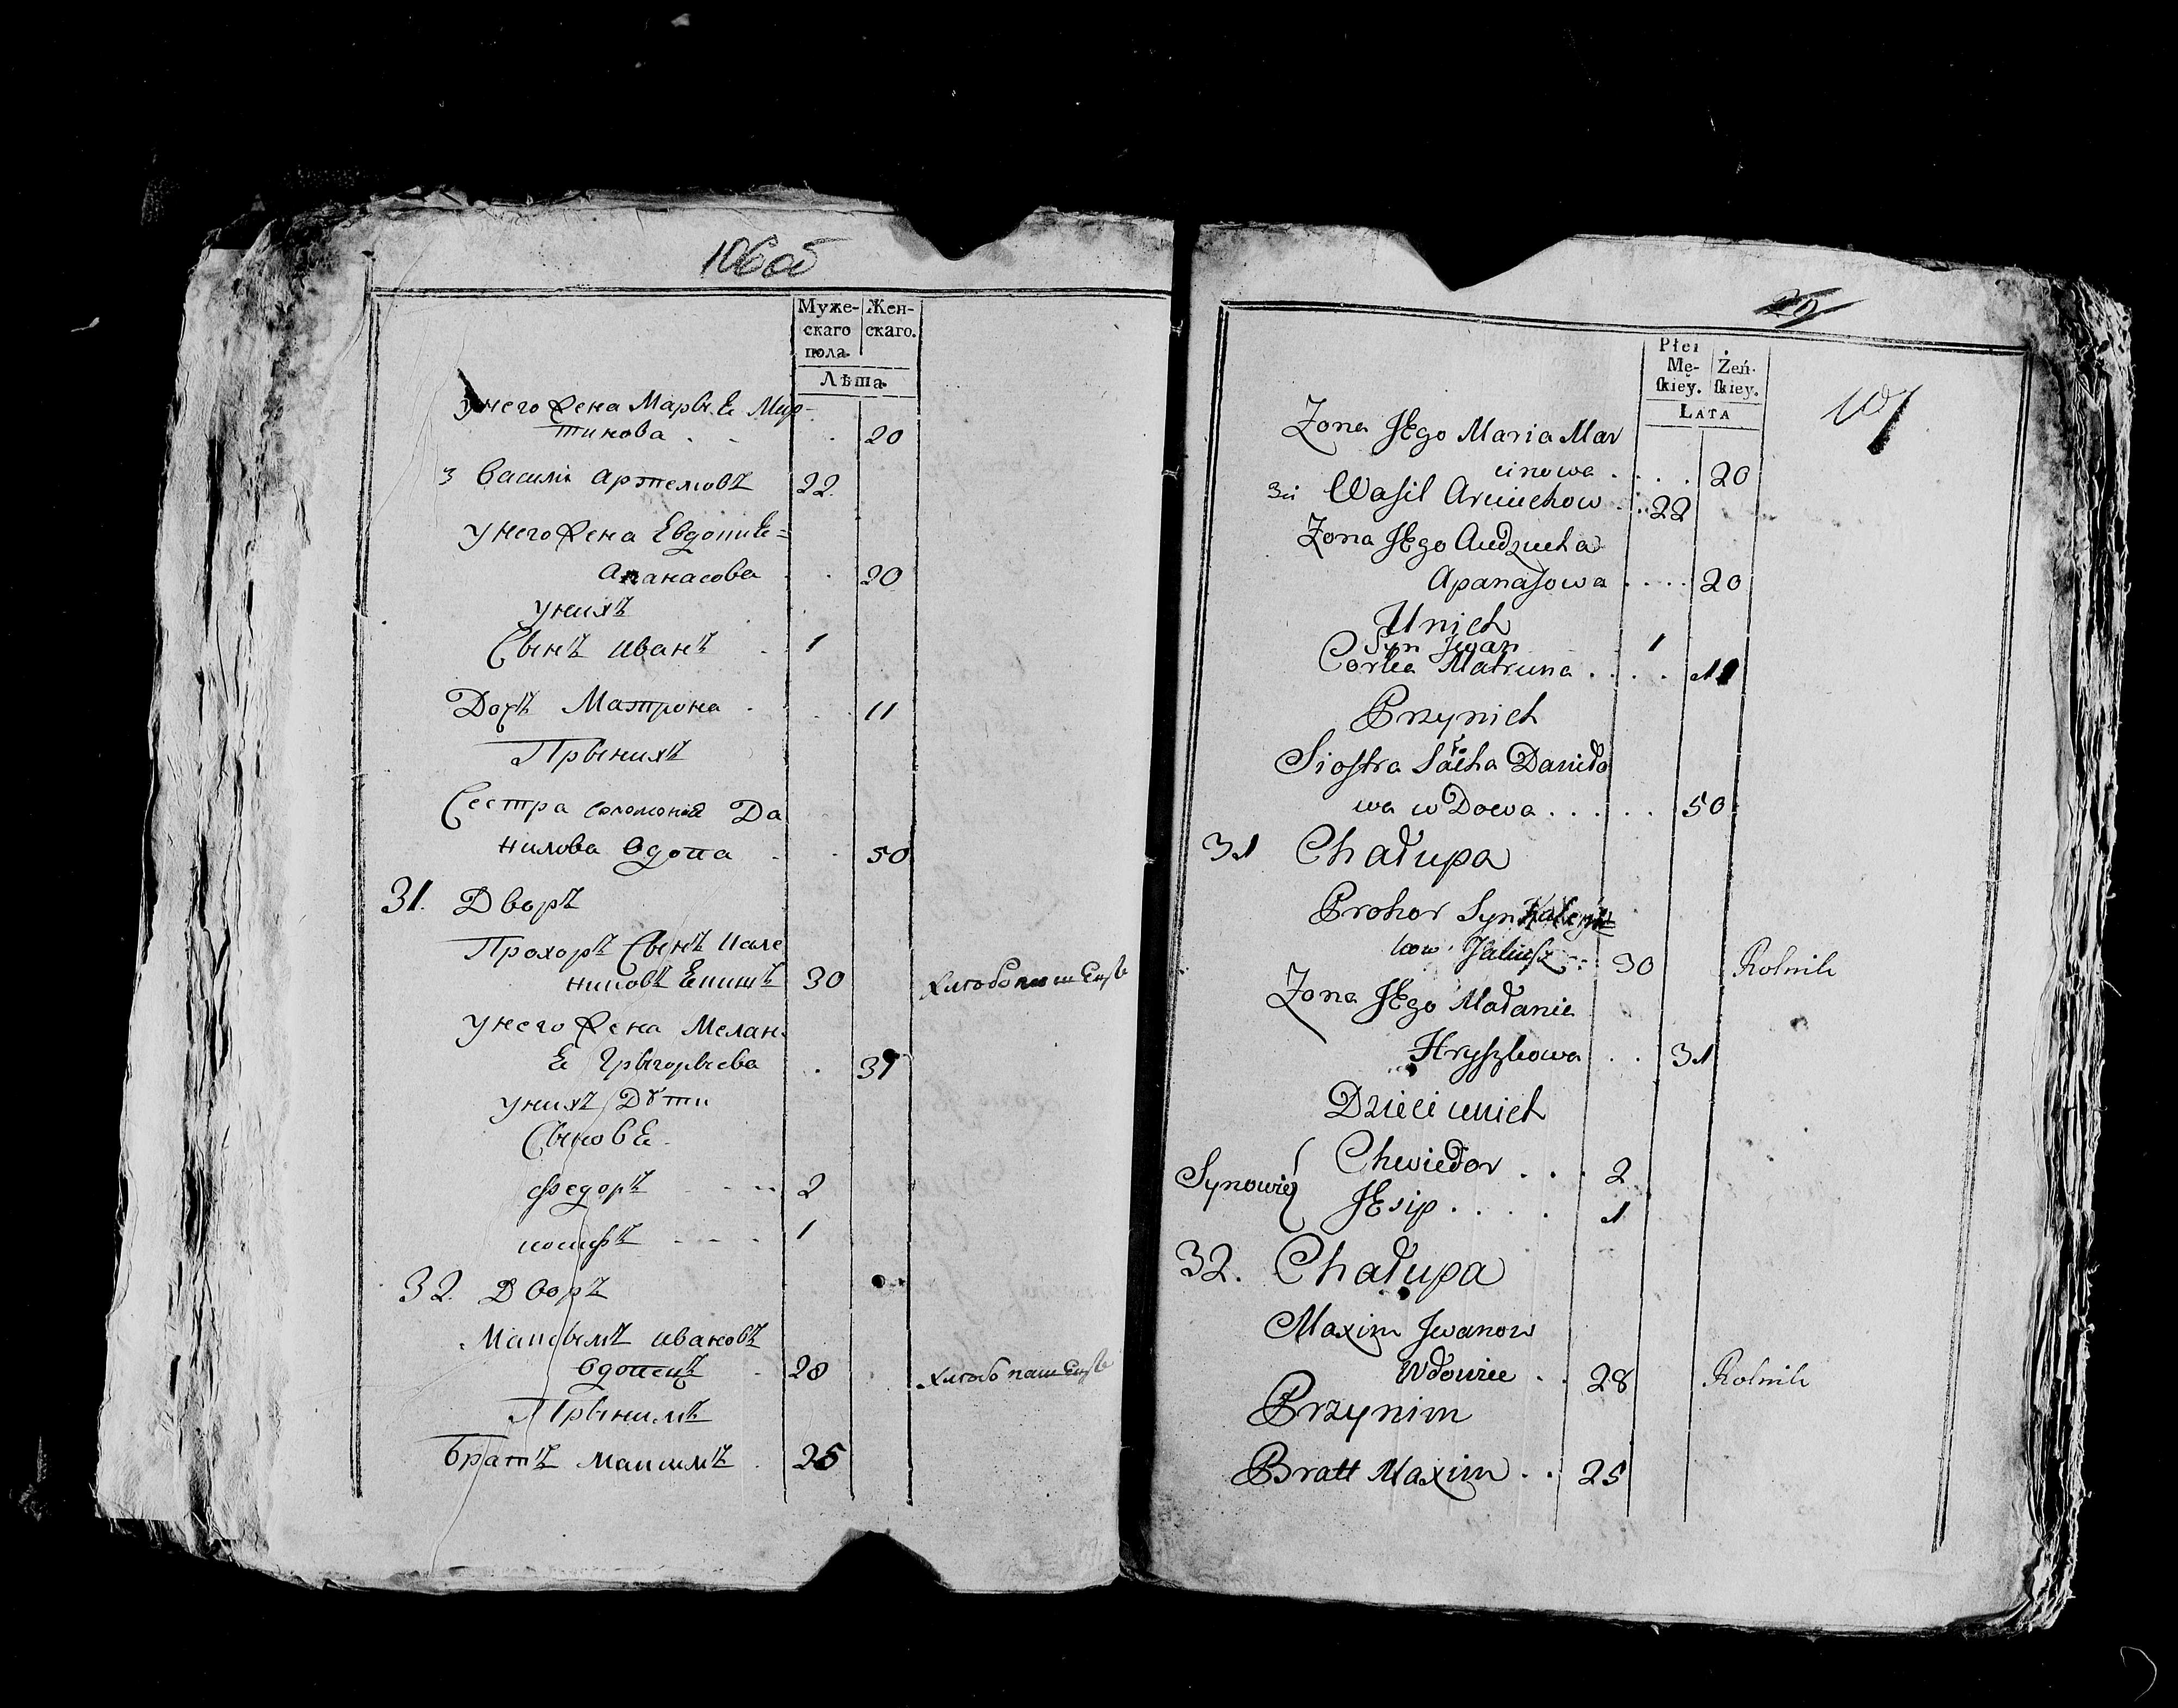 106об
Муже-
скаго
пола.
Жен-
скаго.
Лѣта.
унего жена Марья Мар-
тинова . . . 20
3 Василі Артемовъ 22.
унего жена Евдокия=
Апанасова . . 20
унихъ
Сынъ иванъ . 1
Дочь Матрона . . . 11
Прынихъ
Сестра соломонія Да
нилова вдова . . 50
31. Дворъ
Прохоръ Сынъ
30
унего жена Мелань
я Грыгорьева . 31
унихъ Дѣти
Сыновя
федоръ . . . . 2
иосифъ . . . . 1
32. Дворъ
Максымъ ивановъ
вдовецъ . 28
Прынимъ
Братъ максимъ . 25
107
Płei
Mę-
ſkiey.
Żeń-
ſkiey.
LATA
Zona JEgo Maria Mar
cinowa . . . . 20
3ci Wasil Arciuchow . . 22
Zona JEgo Audziucha
Apanasowa . . . . 20
Unich
Syn Jwan 1
Corka Matruna . . . . 11
Przynich
Siostra Daniło
wa wDowa . . . . . 50
31 Chałupa
Prohor Syn
kow 30 Rolnik
Zona JEgo Małania
Hryszkowa . . 31
Dzieci unich
Synowie
Chwiedor . . . 2
JEsip . . . . 1
32. Chałupa
Maxim Jwanow
Wdowiec . . 28 Rolnik
Przynim
Bratt Maxim . . 25